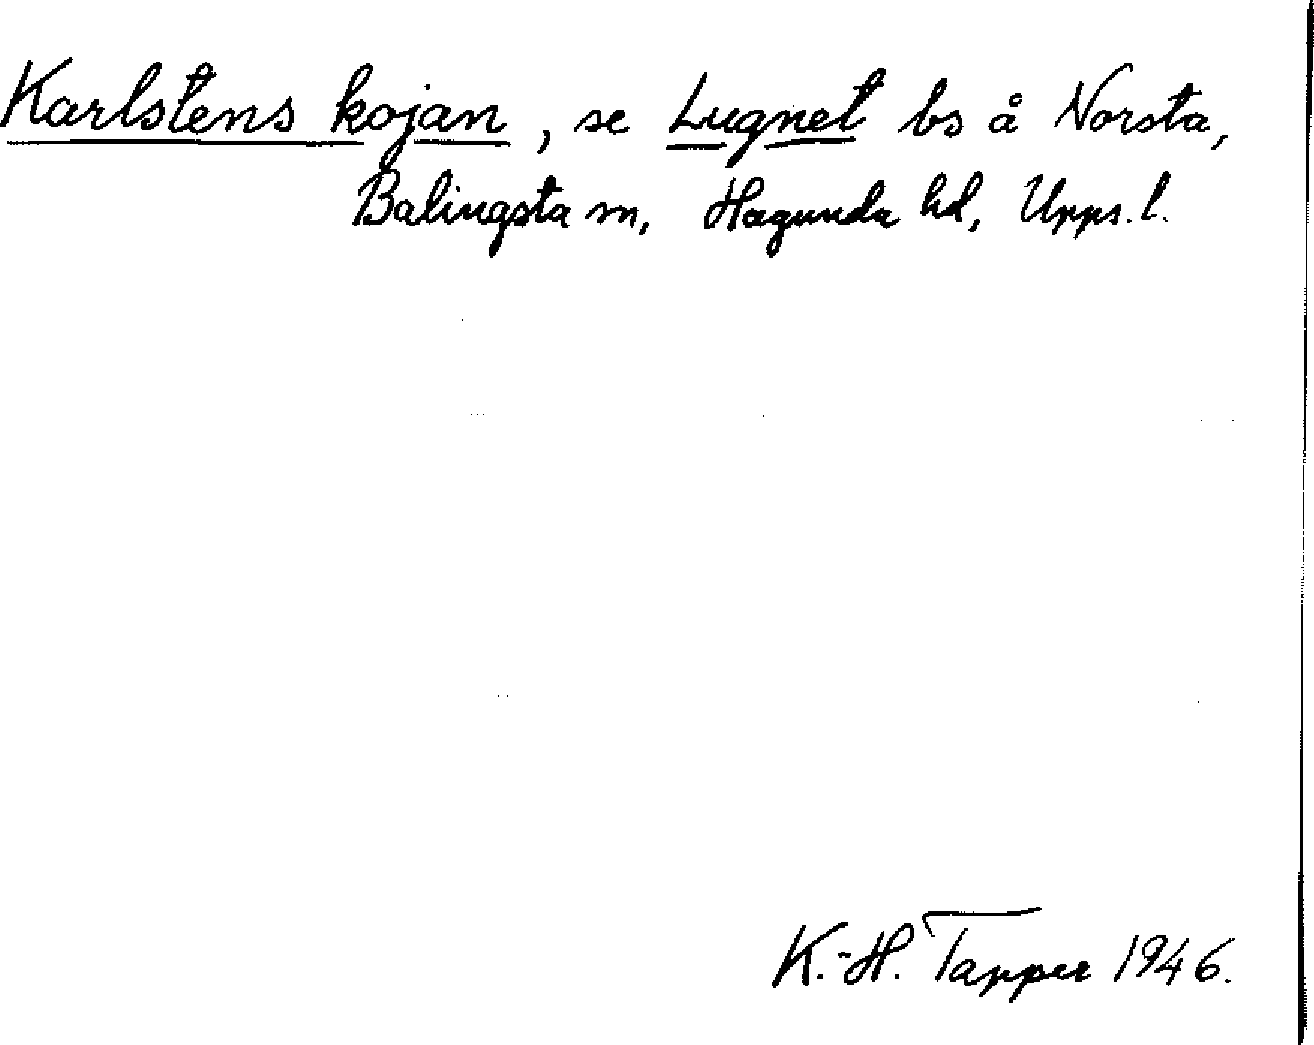 Karlstens kojan, se Lugnet bs å Norsta,
Balingsta sn, Hagunda hd, Upps. l.
K.-H. Tapper 1946.